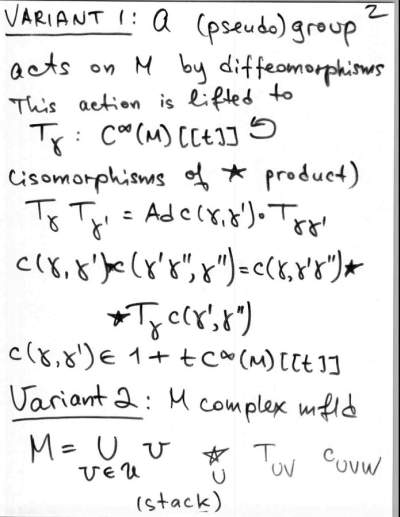 VARIANT 1: a (pseudo)group 2
acts on M by diffeomorphisms
This action is lifted to
T_γ : C^∞(M)[[t]] ↺
(isomorphisms of ★ product)
T_γ T_γ' = Ad c(γ,γ')∘T_γγ'
c(γ,γ')★c(γ'γ'',γ'')=c(γ,γ'γ'')★
★T_γ c(γ',γ'')
c(γ,γ') ∈ 1 + t C^∞(M)[[t]]
Variant 2: M complex mfld
M = ∪_{U∈𝒰} U ★_U T_UV c_UVW
(stack)